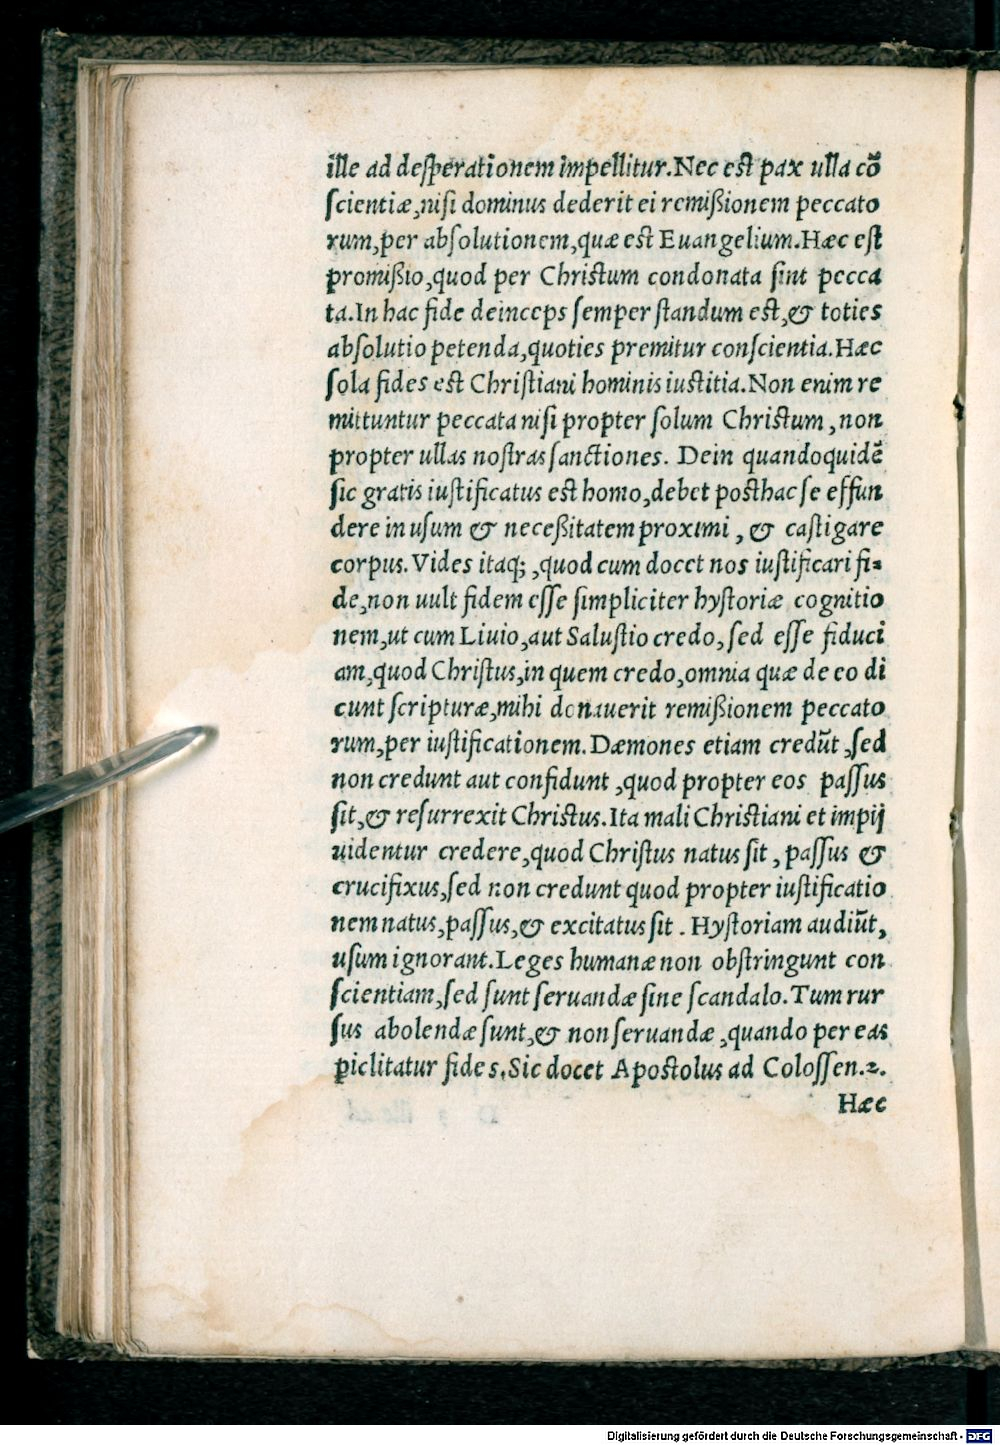 ille ad desperationem impellitur. Nec est pax ulla cõ
scientiæ, nisi dominus dederit ei remißionem peccato
rum, per absolutionem, quæ est Euangelium. Hæc est
promißio, quod per Christum condonata sint pecca
ta. In hac fide deinceps semper standum est, & toties
absolutio petenda, quoties premitur conscientia. Hæc
sola fides est Christiani hominis iustitia. Non enim re
mittuntur peccata nisi propter solum Christum, non
propter ullas nostras sanctiones. Dein quandoquidẽ
sic gratis iustificatus est homo, debet posthac se effun
dere in usum & neceßitatem proximi, & castigare
corpus. Vides itaq;, quod cum docet nos iustificari fi-
de, non uult fidem esse simpliciter hystoriæ cognitio
nem, ut cum Liuio, aut Salustio credo, sed esse fiduci
am, quod Christus, in quem credo, omnia quæ de eo di
cunt scripturæ, mihi donauerit remißionem peccato
rum, per iustificationem. Dæmones etiam credũt, sed
non credunt aut confidunt, quod propter eos passus
sit, & resurrexit Christus. Ita mali Christiani et impij
uidentur credere, quod Christus natus sit, passus &
crucifixus, sed non credunt quod propter iustificatio
nem natus, passus, & excitatus sit. Hystoriam audiũt,
usum ignorant. Leges humanæ non obstringunt con
scientiam, sed sunt seruandæ sine scandalo. Tum rur
sus abolendæ sunt, & non seruandæ, quando per eas
ꝑiclitatur fides. Sic docet Apostolus ad Colossen. 2.
Hæc
Digitalisierung gefördert durch die Deutsche Forschungsgemeinschaft - DFG